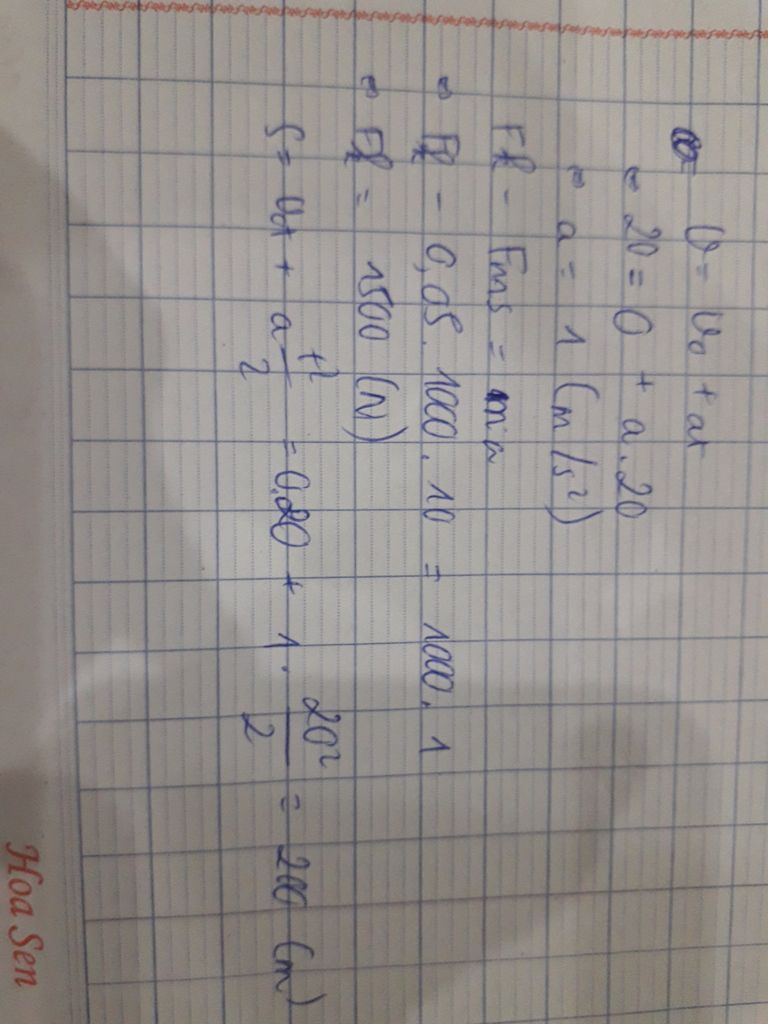 v = v₀ + at
⇔ 20 = 0 + a.20
⇔ a = 1 (m/s²)
Fk - Fms = m.a
⇔ Fk - 0,05.1000.10 = 1000.1
⇔ Fk = 1500 (N)
S = v₀t + a t²/2 = 0.20 + 1. 20²/2 = 200 (m)
Hoa Sen